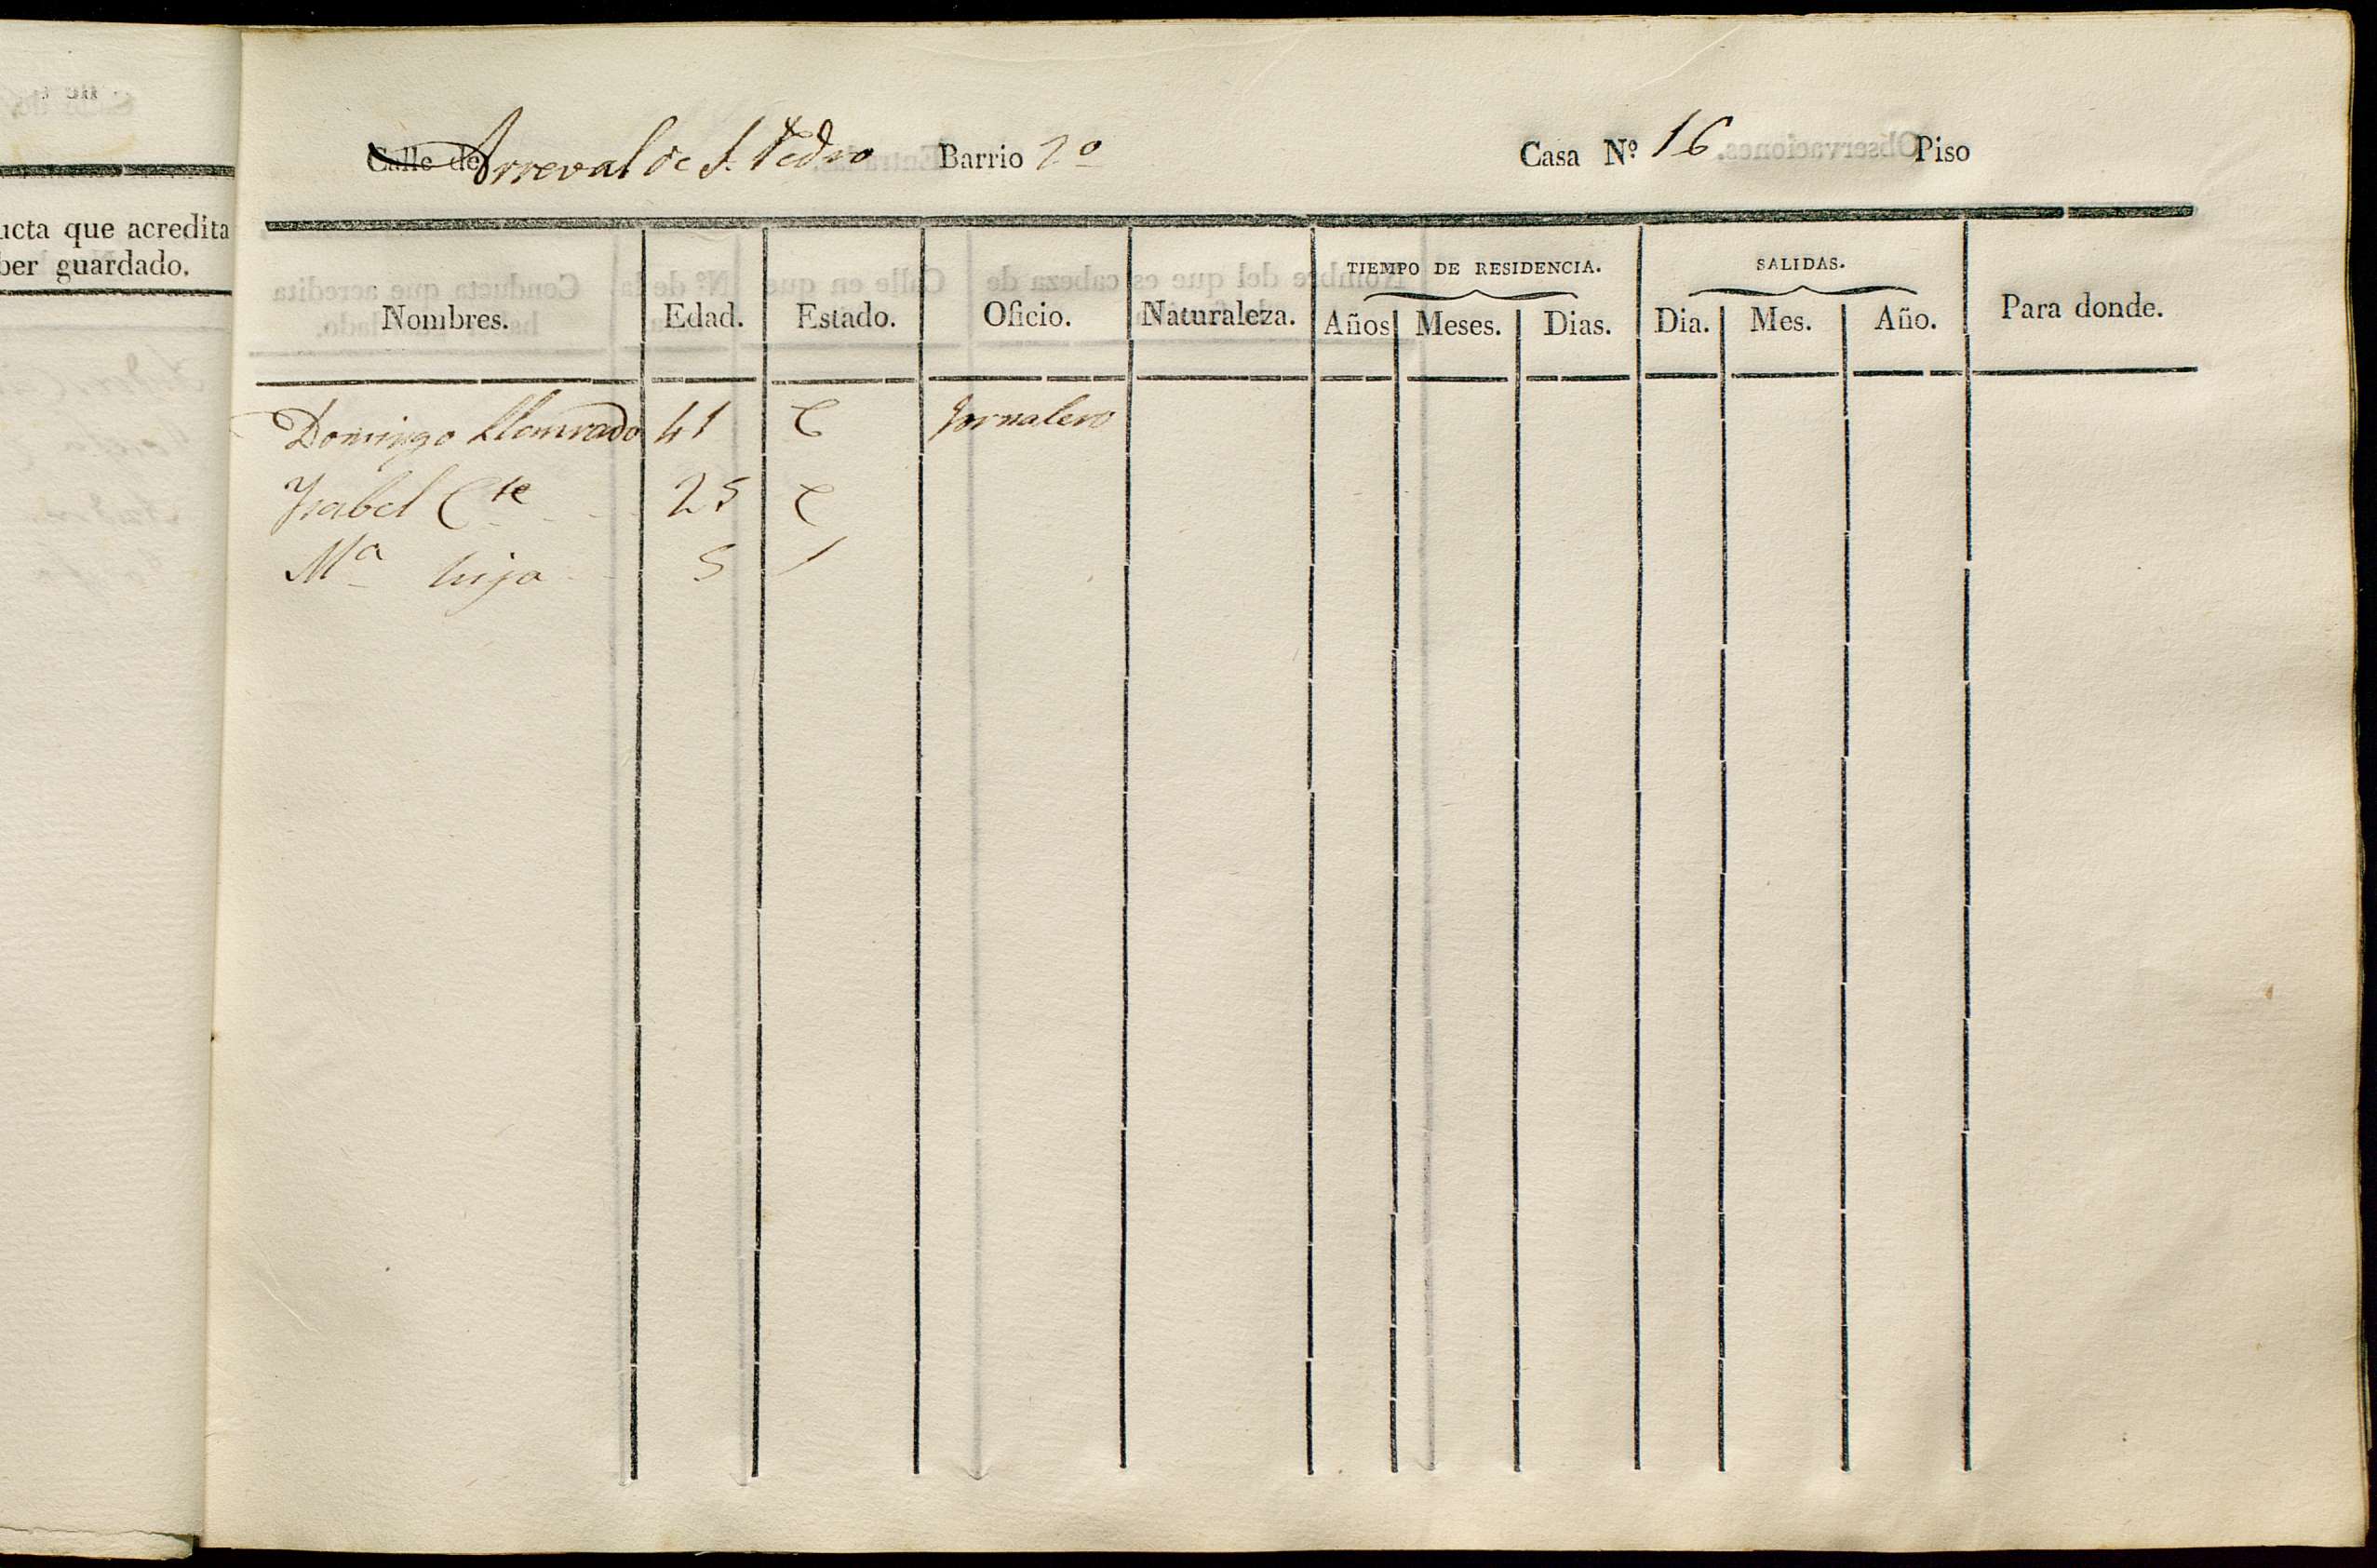 ucta que acredita
ber guardado.
Calle de Arreval de S. Pedro Barrio 2º Casa Nº 16. Piso
TIEMPO DE RESIDENCIA. SALIDAS.
Nombres. Edad. Estado. Oficio. Naturaleza. Años Meses. Dias. Dia. Mes. Año. Para donde.
Domingo 41 C Jornalero
Ysabel Cte 25 C
Mª hija 5 /